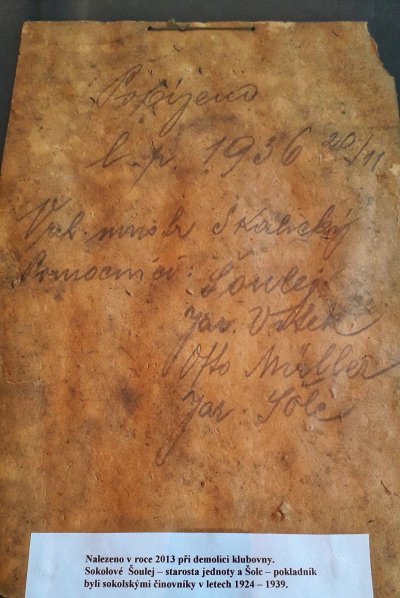 Popíjeno
l. p. 1936 20/11
Vrch. mistr Skalický
Pomocníci: Šoulej
Jar. Vítek
Otto Müller
Jar. Šolc
Nalezeno v roce 2013 při demolici klubovny.
Sokolové Šoulej – starosta jednoty a Šolc – pokladník
byli sokolskými činovníky v letech 1924 – 1939.